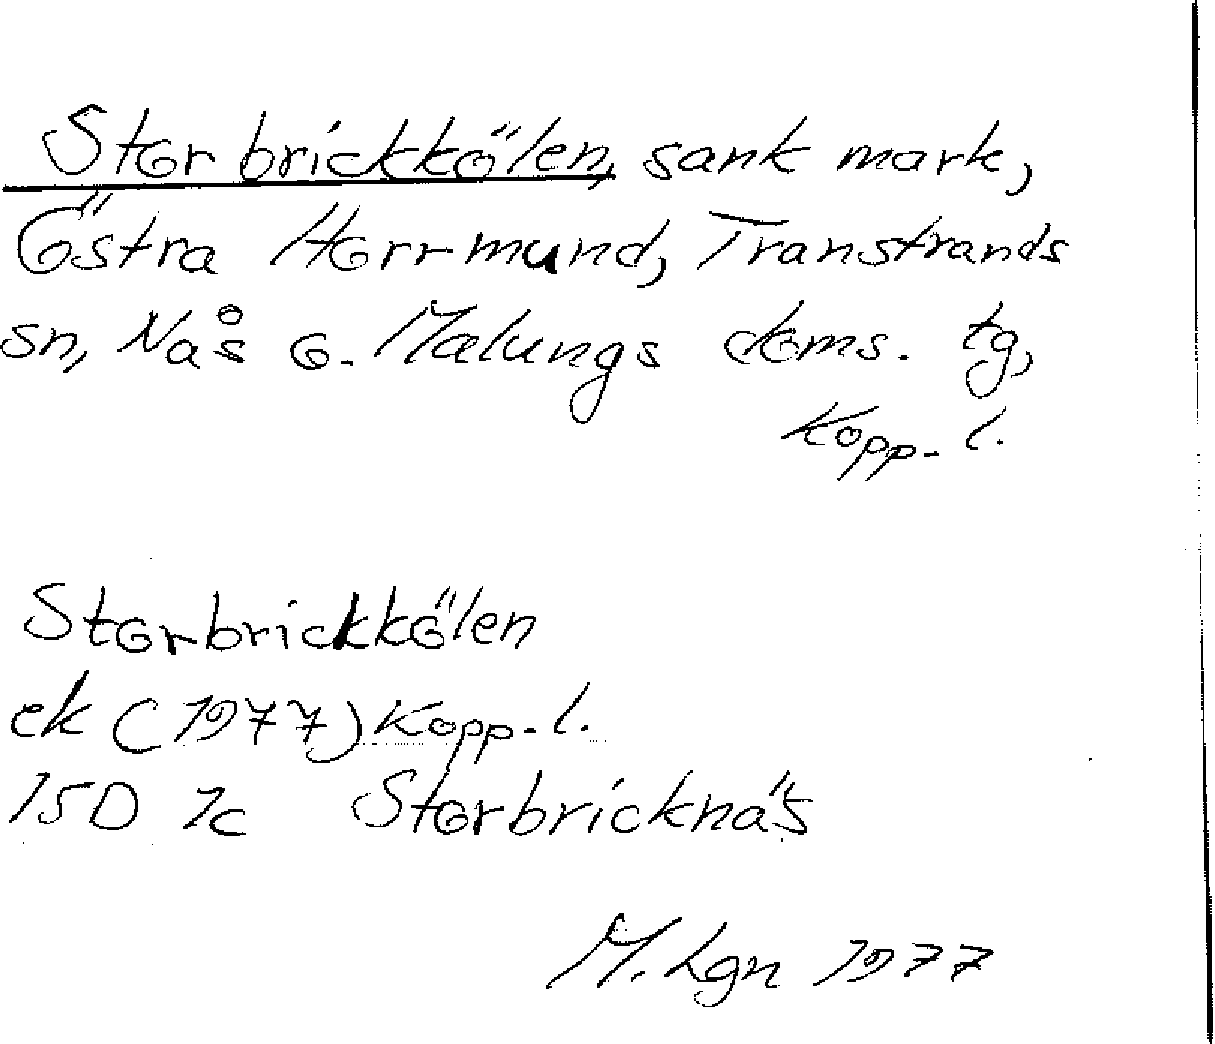 Storbrickkölen, sank mark,
Östra Horrmund, Transtrands
sn, Nås o. Malungs doms. tg,
Kopp. l.
Storbrickkölen
ek (1977) Kopp. l.
15D 1c Storbricknäs
M. Lgn 1977